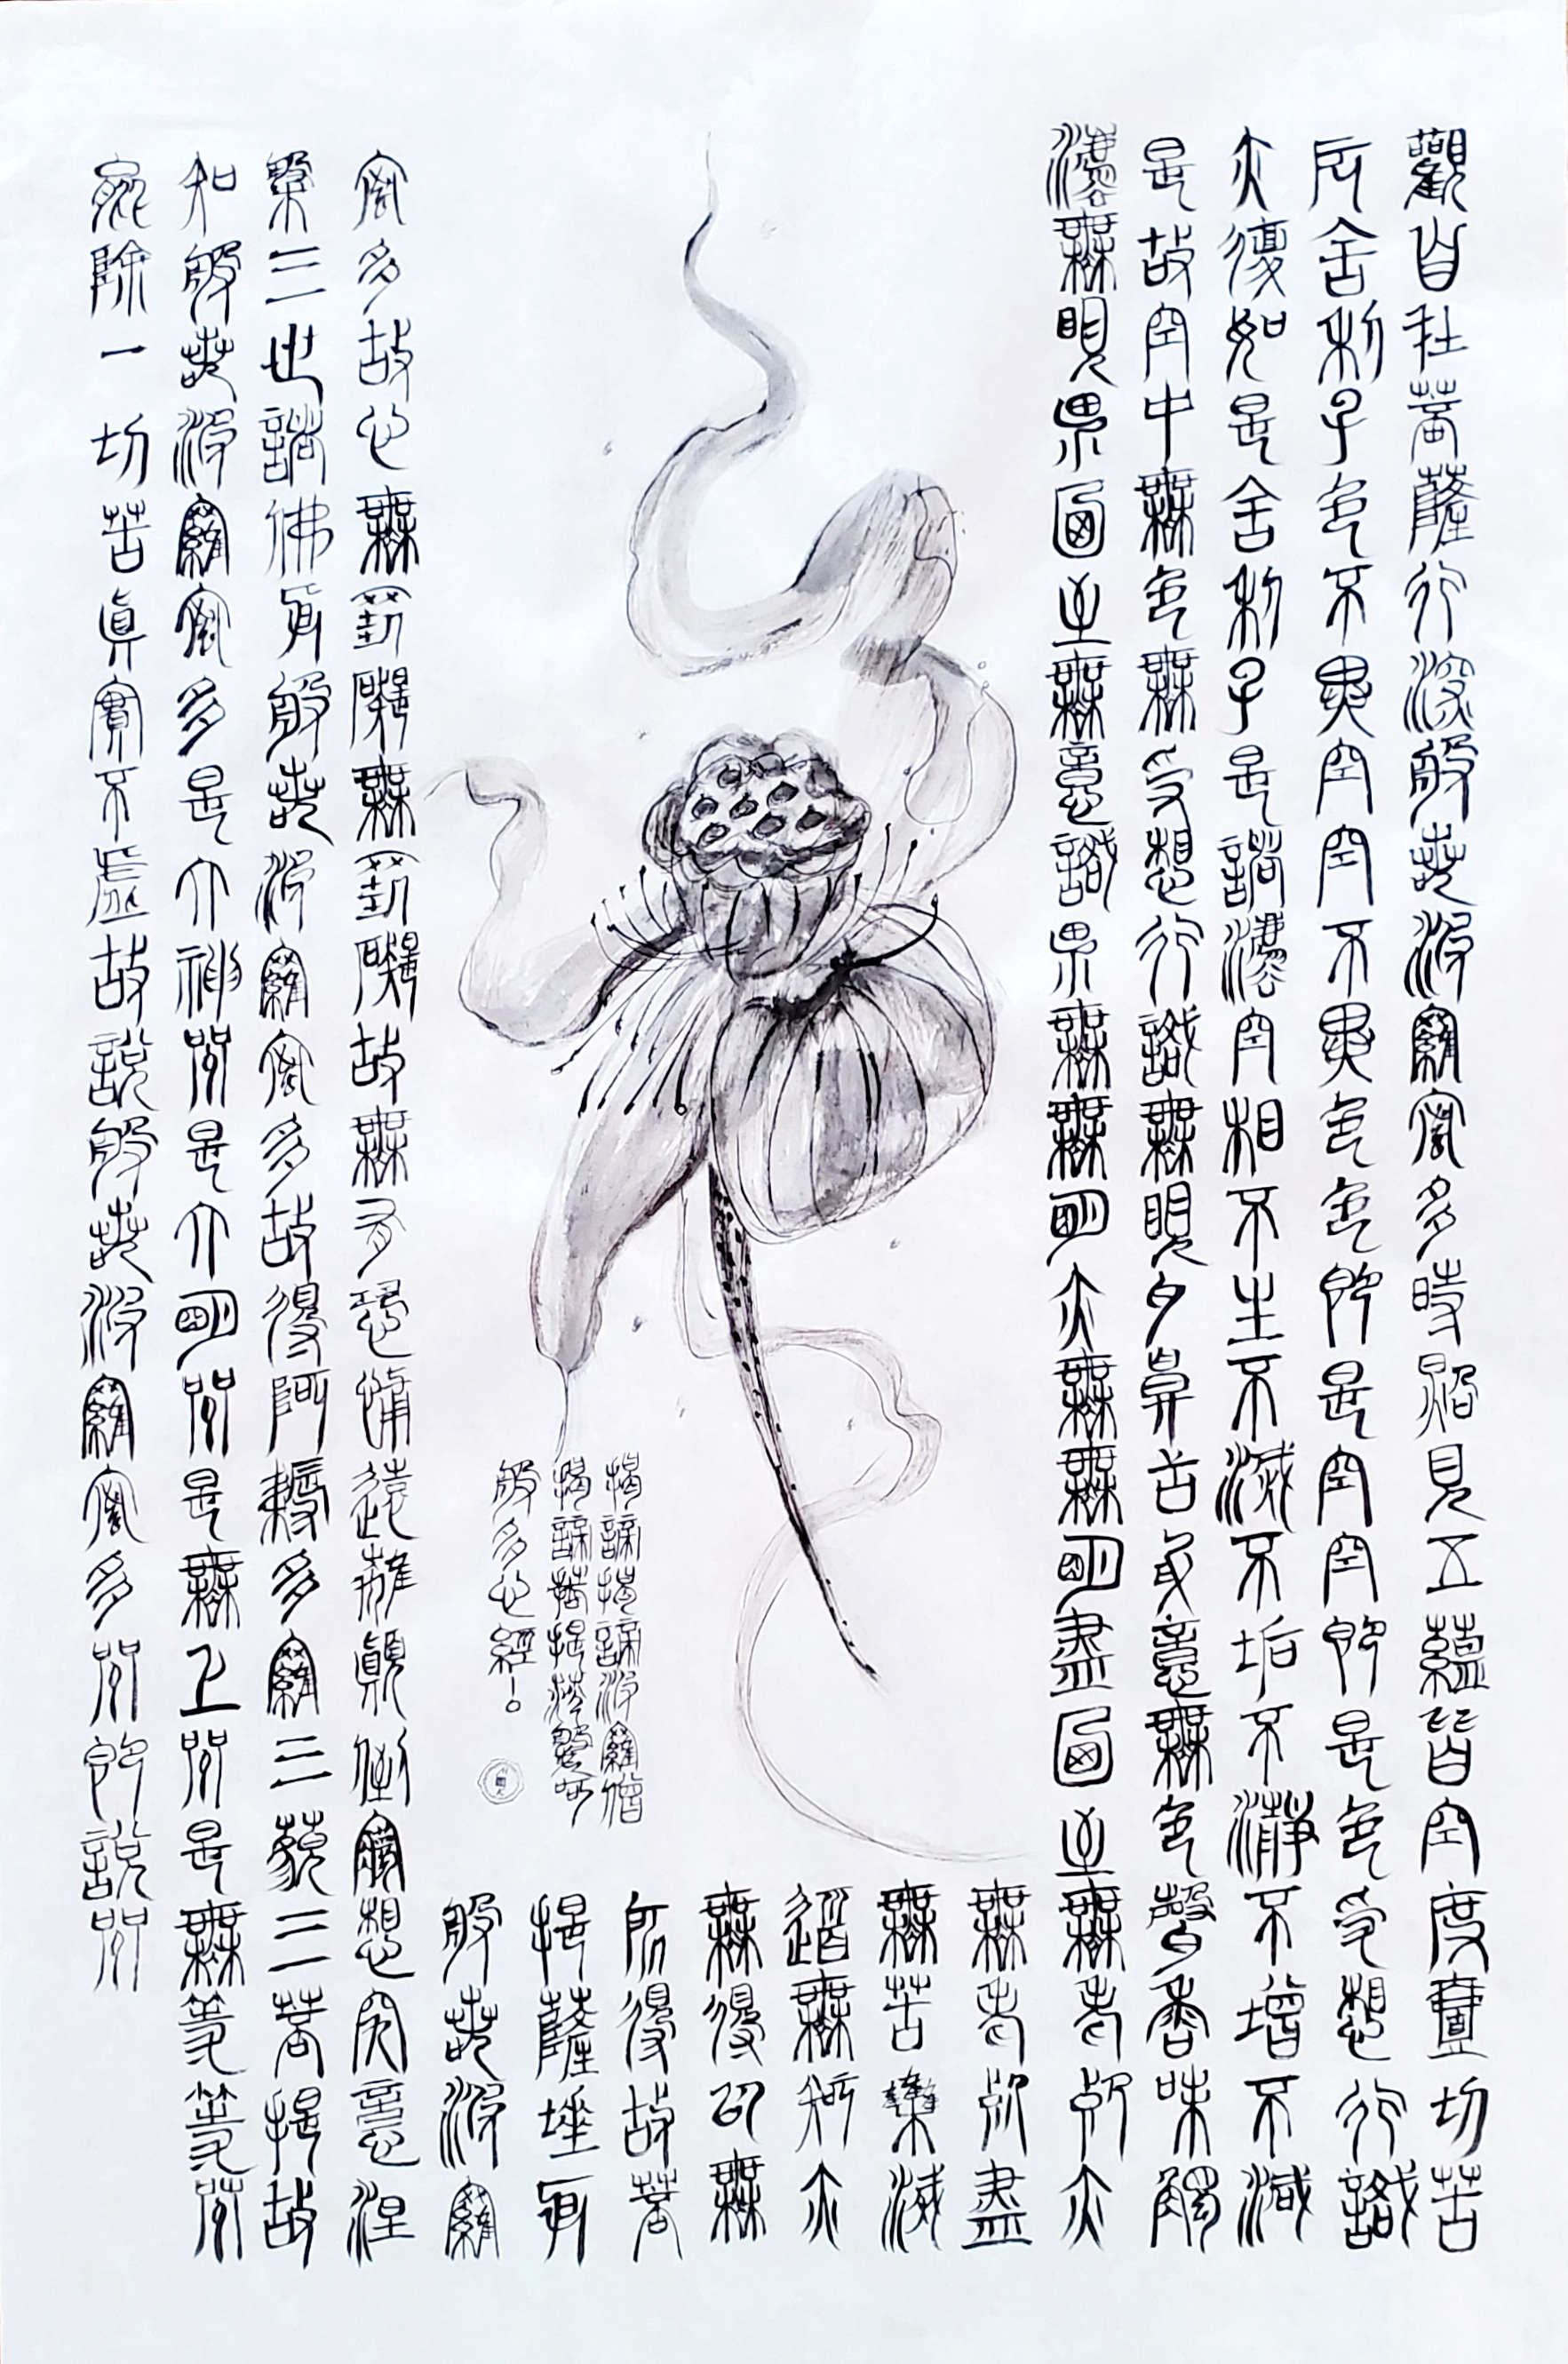 觀自在菩薩行深般若波羅蜜多時照見五蘊皆空度壹切苦
厄舍利子色不異空空不異色色即是空空即是色受想行識
亦復如是舍利子是諸灋空相不生不滅不垢不瀞不增不減
是故空中無色無受想行識無眼耳鼻舌身意無色聲香味觸
灋無眼界乃至無意識界無無明亦無無明盡乃至無老死亦
無老死盡
無苦集滅
道無智亦
無得以無
所得故菩
提薩埵依
般若波羅
蜜多故心無罣礙無罣礙故無有恐怖遠離顛倒夢想究竟涅
槃三世諸佛依般若波羅蜜多故得阿耨多羅三藐三菩提故
知般若波羅蜜多是大神咒是大明咒是無上咒是無等等咒
能除一切苦真實不虛故說般若波羅蜜多咒即說咒
揭諦揭諦波羅僧
揭諦菩提莎婆呵
般多心經